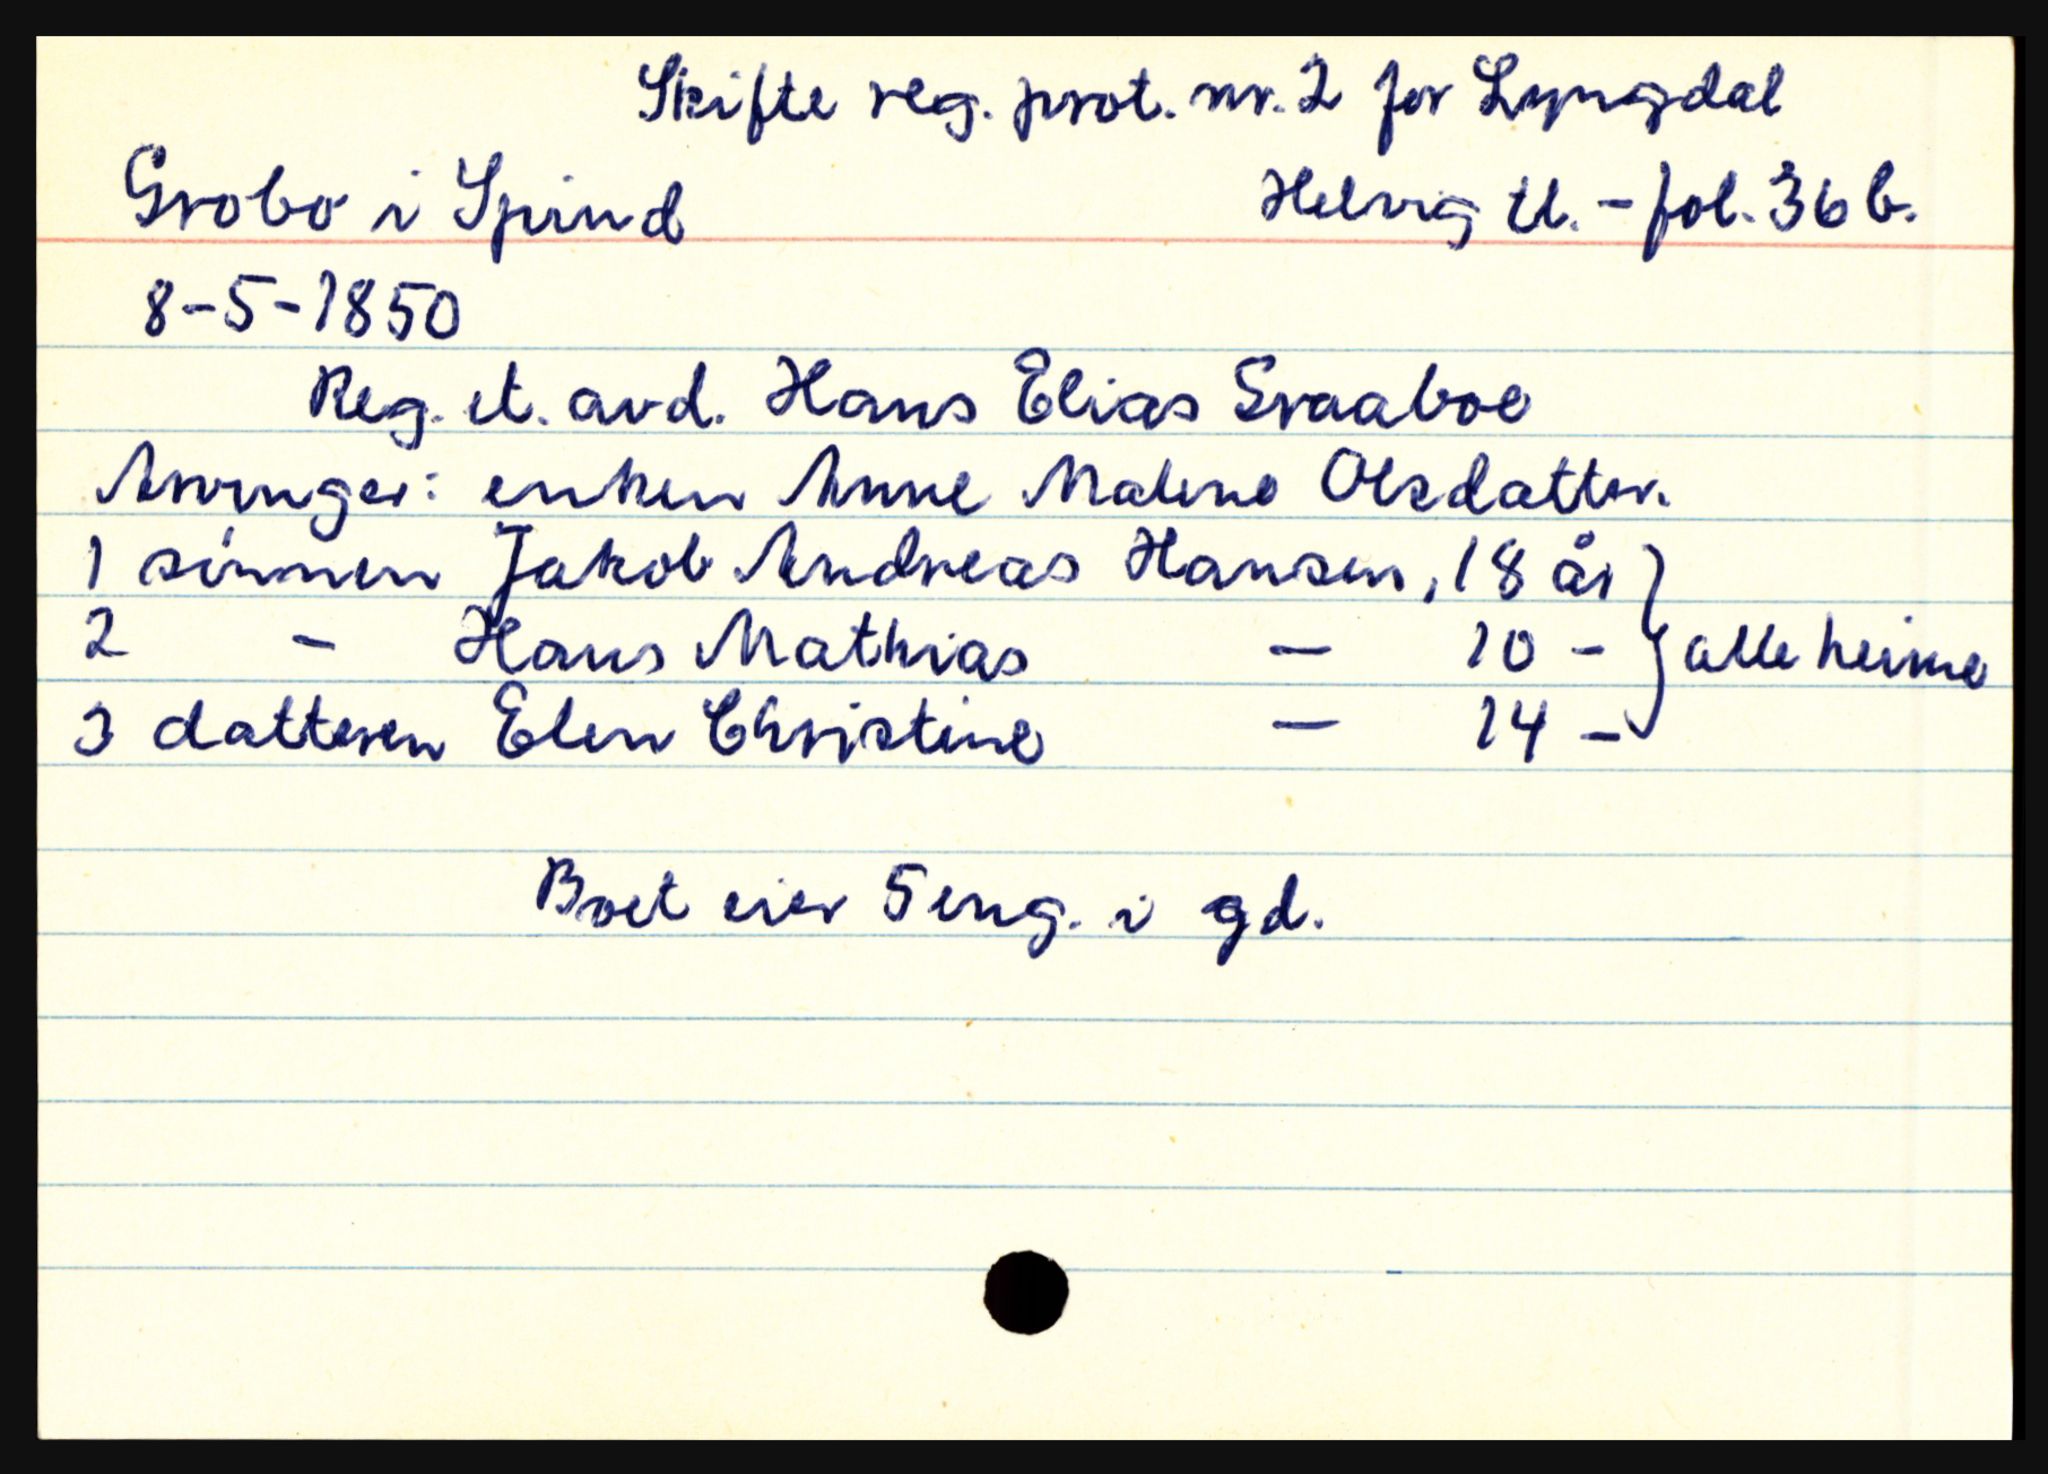 Skifte reg. prot. nr. 2 for Lyngdal
Grobo i Spind Helvig tl. - fol. 36 b.
8-5-1850
Reg. et. avd. Hans Elias Graaboe
Arvinger: enken Anne Malene Olsdatter.
1 sønnen Jakob Andreas Hansen, 18 år
2 - Hans Mathias - 10 - } alle heime
3 datteren Elen Christine - 14 -
Boet eier 5 eng. i gd.